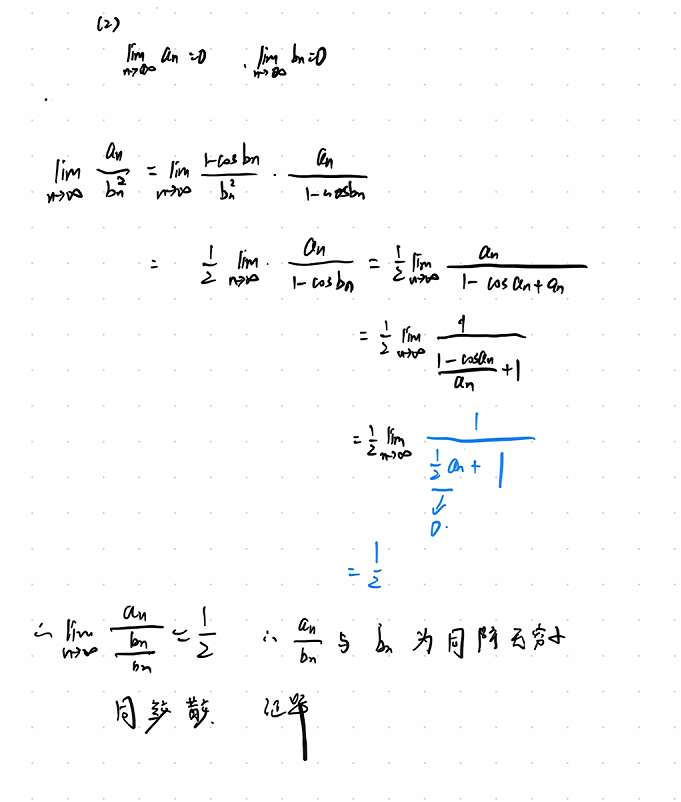 (2)
lim n→∞ an = 0 . lim n→∞ bn = 0
lim n→∞ an/bn² = lim n→∞ (1-cos bn)/bn² · an/(1-cos bn)
= 1/2 lim n→∞ · an/(1-cos bn) = 1/2 lim n→∞ an/(1-cos an+an)
= 1/2 lim n→∞ 1/((1-cos an)/an + 1)
= 1/2 lim n→∞ 1/(1/2 an + 1)
↓
0.
= 1/2
∴ lim n→∞ an/(bn/bn) = 1/2 ∴ an/bn 与 bn 为同阶无穷小
同敛散. 证毕